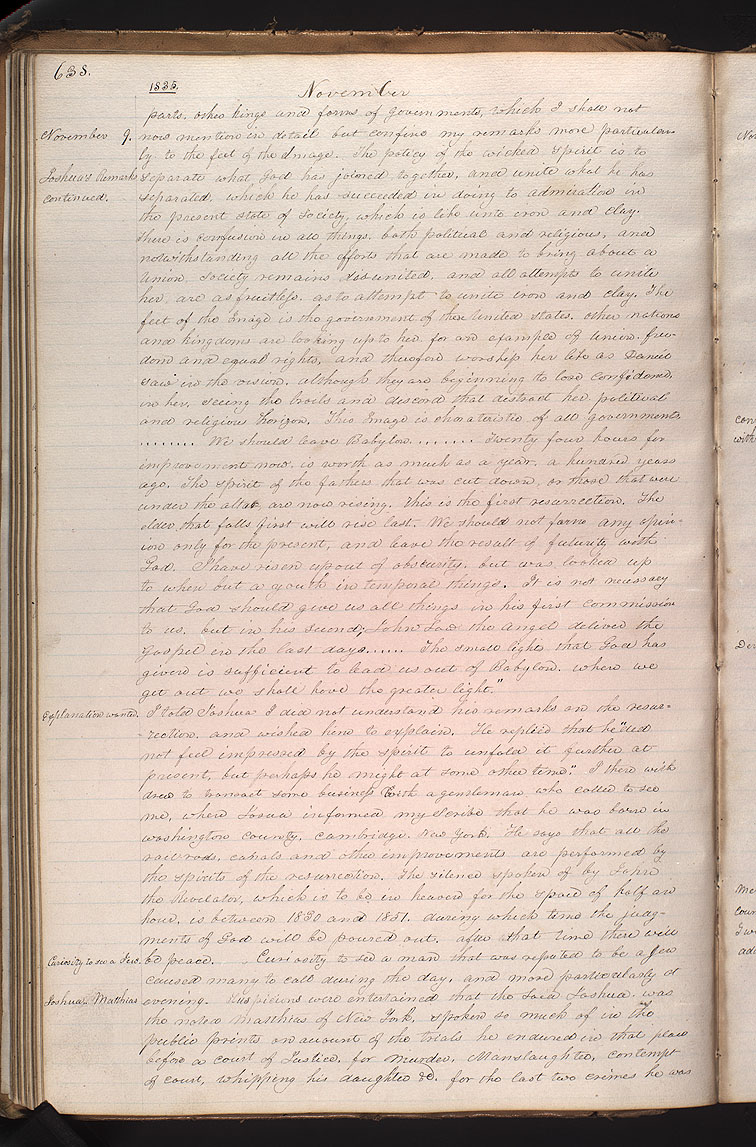 638.
1835.
November
parts, other kings and forms of governments, which I shall not
November 9. now mention in detail but confine my remarks more particular-
ly to the feet of the Image. The policy of the wicked spirit is to
Joshua's Remarks separate what God has joined together, and unite what he has
continued. separated, which he has succeeded in doing to admiration in
the present state of society, which is like unto iron and clay.
there is confusion in all things, both political and religious, and
notwithstanding all the efforts that are made to bring about a
Union, society remains disunited, and all attempts to unite
her, are as fruitless, as to attempt to unite iron and clay. The
feet of the Image is the government of these United States. other nations
and kingdoms are looking up to her, for an example of Union, free-
dom and equal rights, and therefore worship her, like as Daniel
saw in the vision, although they are beginning to lose confidence
in her, seeing the broils and discord that distract her political
and religious horizon. This Image is characteristic of all governments
........ We should leave Babylon ........ Twenty four hours for
improvement now, is worth as much as a year, a hundred years
ago. The spirit of the fathers that was cut down, or those that were
under the altar, are now rising. this is the first resurrection. The
elder, that falls first will rise last. We should not form any opin-
ion only for the present, and leave the result of futurity with
God. I have risen up out of obscurity, but was looked up
to when but a youth in temporal things. It is not necessary
that God should give us all things in his first commission
to us, but in his second; John saw the angel deliver the
Gospel in the last days...... The small light that God has
given is sufficient to lead us out of Babylon. when we
get out we shall have the greater light."
Explanation wanted. I told Joshua I did not understand his remarks on the resur-
-rection, and wished him to explain. He replied that he "did
not feel impressed by the spirit to unfold it further at
present, but perhaps he might at some other time." I then with
drew to transact some business with a gentleman who called to see
me, when Josua informed my scribe that he was born in
washington county, Cambridge, New York. He says that all the
rail rods, canals and other improvements are performed by
the spirits of the resurrection. The silence spoken of by
the Revelator, which is to be in heaven for the space of half an
hour, is between 1830 and 1851. during which time the judg-
ments of God will be poured out. after that time there will
Curiosity to see a Jew. be peace. Curiosity to see a man that was reputed to be a jew
caused many to call during the day, and more particularly at
Joshua, Matthias evening. Suspicions were entertained that the said Joshua was
the noted Matthias of New York, spoken so much of in the
public prints on account of the trials he endured in that place
before a court of Justice, for murder, Manslaughter, contempt
of court, whipping his daughter &c. for the last two crimes he was